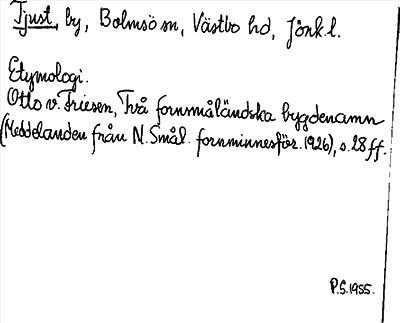 Tjust, by, Bolmsö sn, Västbo hd, Jönk.l.
Etymologi.
Otto v. Friesen, Två fornsmåländska bygdenamn
(Meddelanden från N. Smål. fornminnesför. 1926), s. 28 ff.
P.S. 1955.